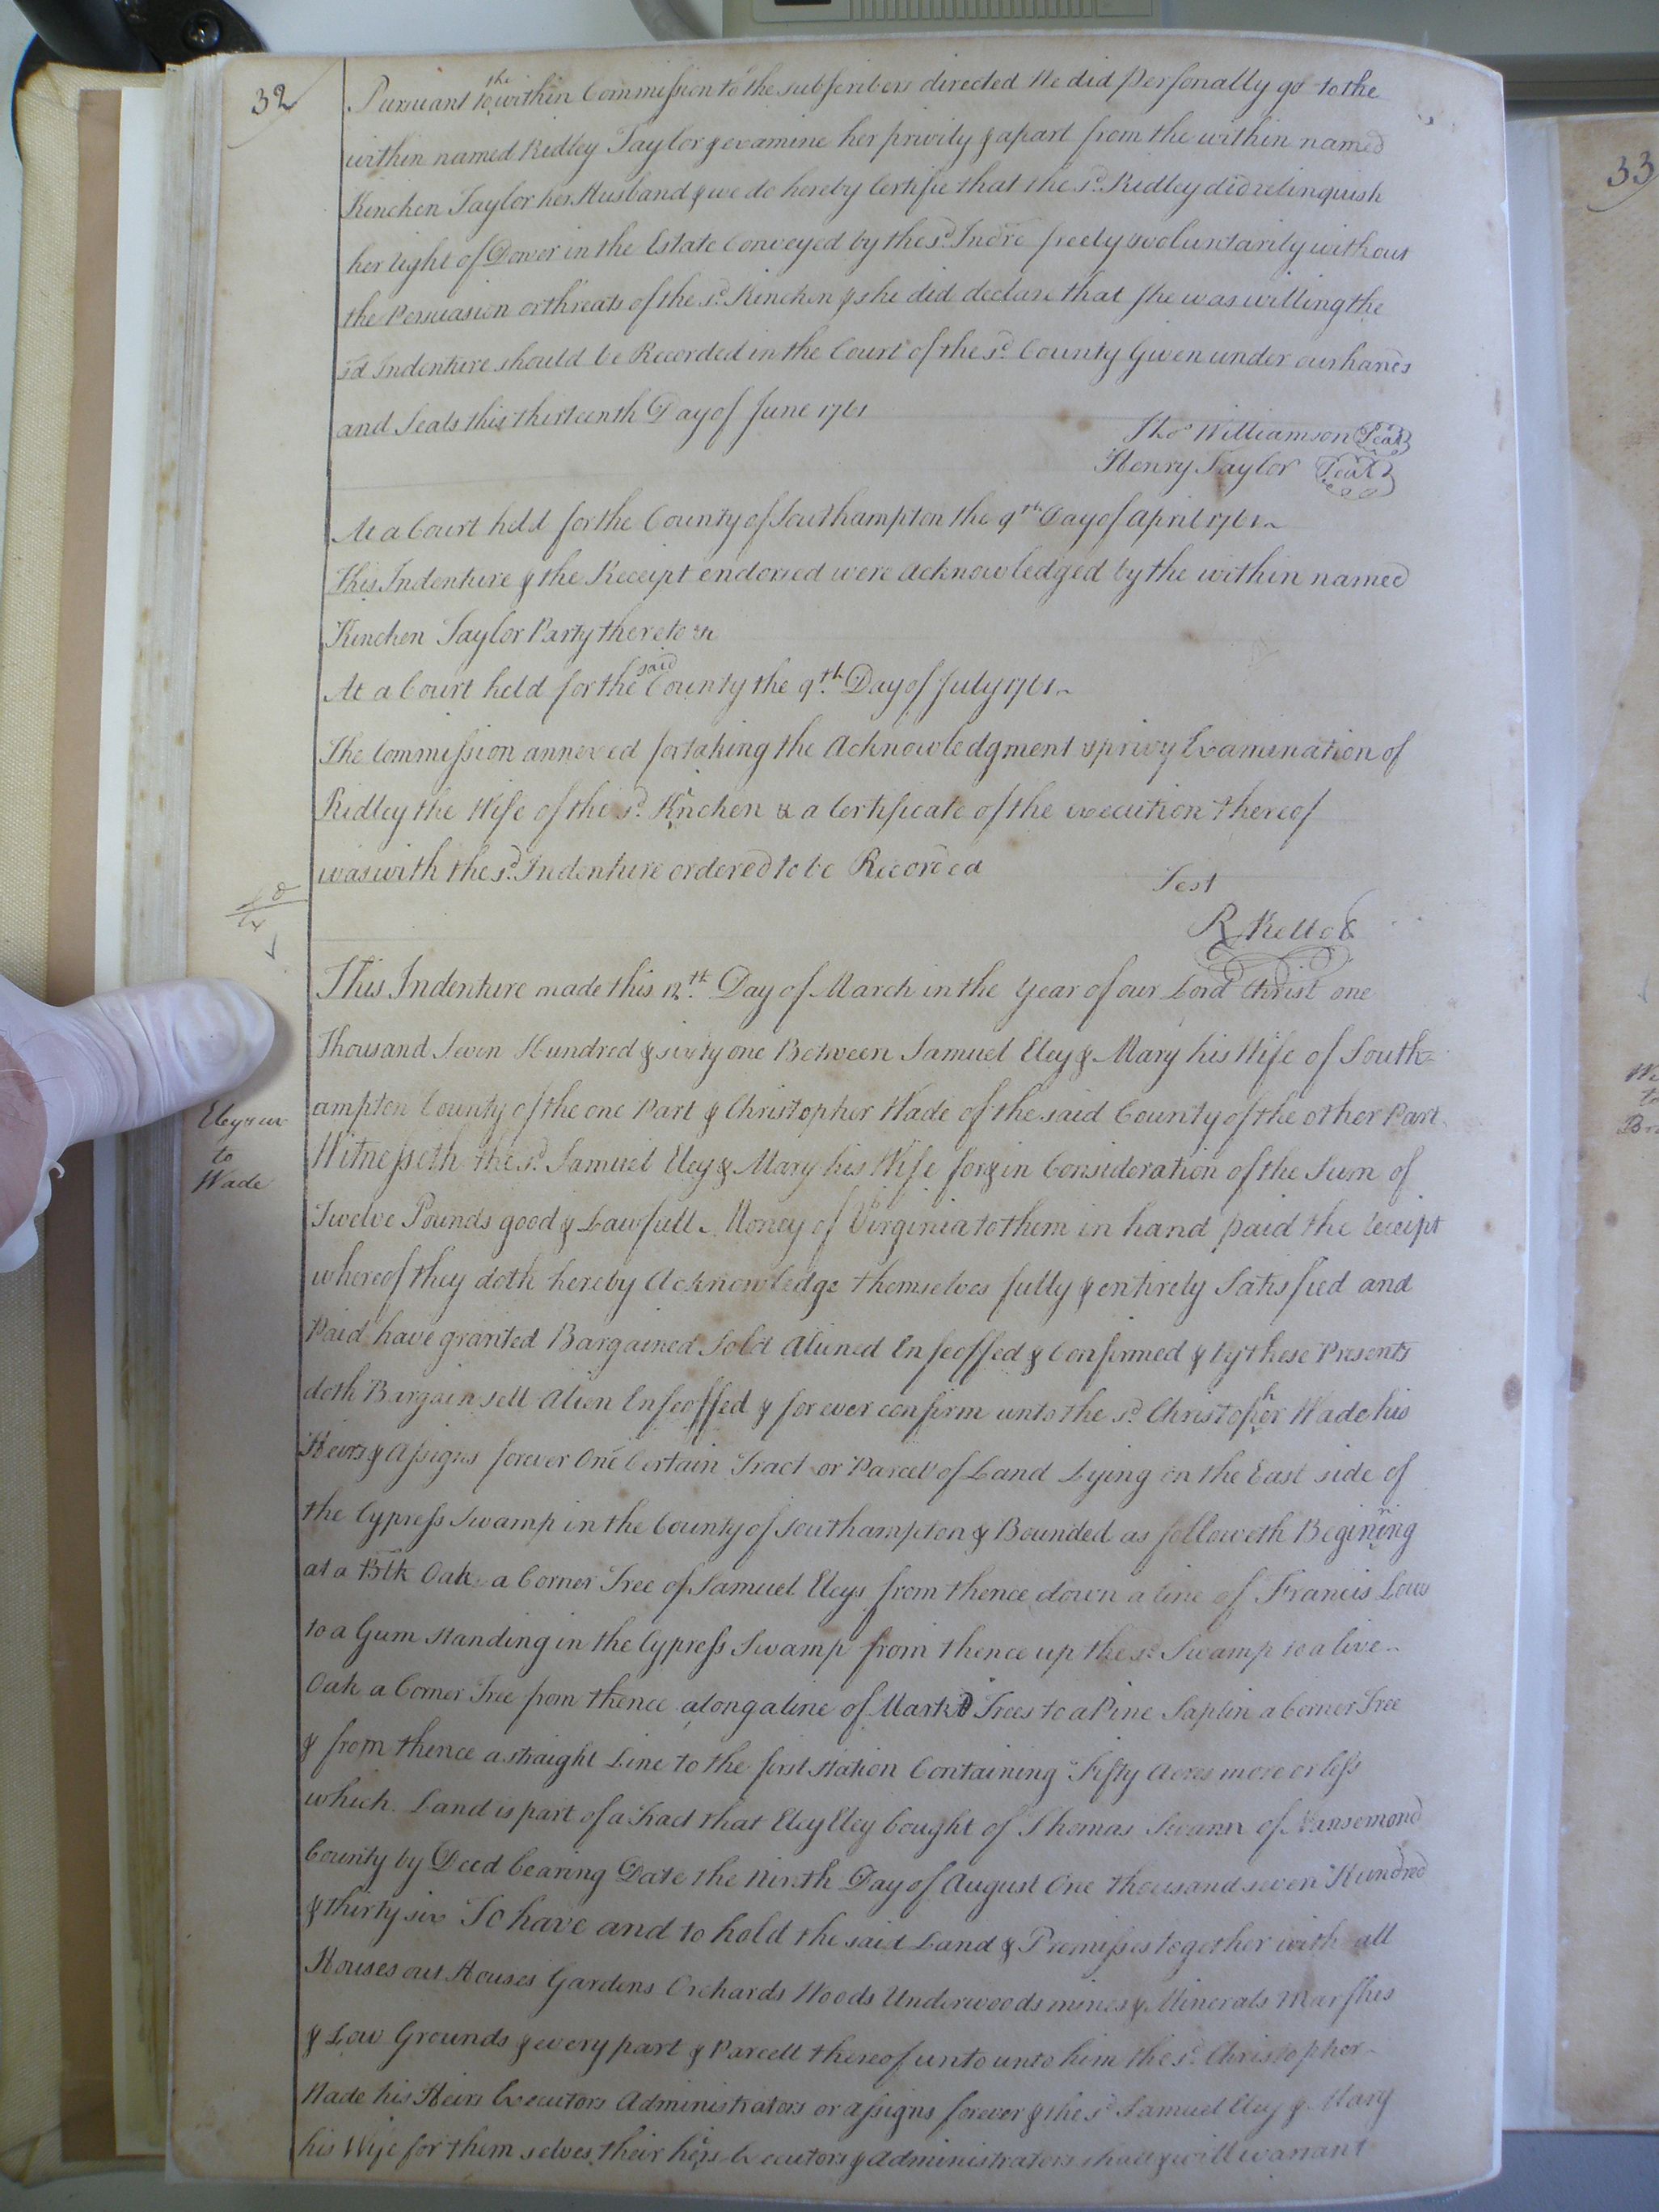 32
Pursuant to the within Commission to the subscribers directed We did Personally go to the
within named Ridley Taylor & examine her privily & apart from the within named
Kinchen Taylor her Husband & we do hereby Certifie that the sd. Ridley did relinquish
her right of Dower in the Estate Conveyed by the sd. Indre freely & voluntarily without
the Persuasion or threats of the sd. Kinchen & she did declare that she was willing the
sd Indenture should be Recorded in the Court of the sd. County Given under our hands
and Seals this thirteenth Day of June 1761
Tho Williamson Seal
Henry Taylor Seal
At a Court held for the County of Southampton the 9th Day of April 1761
This Indenture & the Receipt endorsed were Acknowledged by the within named
Kinchen Taylor Party thereto &
At a Court held for the said County the 9th. Day of July 1761
The Commission annexed for taking the Acknowledgment & privy Examination of
Ridley the Wife of the sd. Kinchen & a Certificate of the execution thereof
was with the sd. Indenture ordered to be Recorded
Test
R Kello C
This Indenture made this 12th. Day of March in the Year of our Lord Christ one
Thousand Seven Hundred & sixty one Between Samuel Eley & Mary his Wife of South=
ampton County of the one Part & Christopher Wade of the said County of the other Part
Eley & ux
to
Wade
Witnesseth the sd. Samuel Eley & Mary his Wife for & in Consideration of the Sum of
Twelve Pounds good & Lawfull Money of Virginia to them in hand paid the receipt
whereof they doth hereby Acknowledge themselves fully & entirely Satisfied and
Paid have granted Bargained Sold Aliened Enfeoffed & Confirmed & by these Presents
doth Bargain sell Alien Enfeoffed & forever confirm unto the sd. Christopher Wade his
Heirs & Assigns forever One Certain Tract or Parcel of Land Lying on the East side of
the Cypress Swamp in the County of Southampton & Bounded as followeth Begining
at a Blk Oak a Corner Tree of Samuel Eleys from thence down a line of Francis Low
to a Gum standing in the Cypress Swamp from thence up the sd. Swamp to a live
Oak a Corner Tree from thence along a line of Markd Trees to a Pine Saplin a Corner Tree
& from thence a straight Line to the first station Containing Fifty Acres more or less
which Land is part of a Tract that Eley Eley bought of Thomas Swann of Nansemond
County by Deed bearing Date the Ninth Day of August One thousand seven Hundred
& thirty six To have and to hold the said Land & Premisses together with all
Houses out Houses Gardens Orchards Woods Underwoods mines & Minerals Marshes
& Low Grounds & every part & Parcell thereof unto unto him the sd. Christopher
Wade his Heirs Executors Administrators or assigns forever & the sd Samuel Eley & Mary
his Wife for them selves their heirs Executors & Administrators shall & will warrant
33